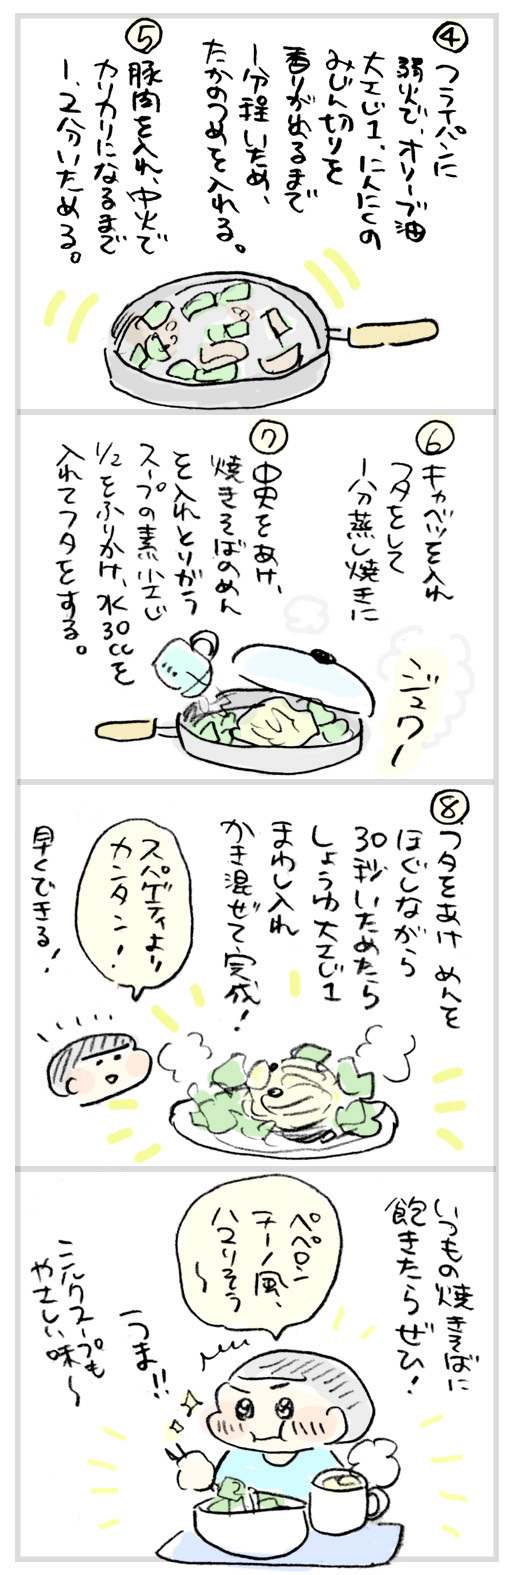 ④
フライパンに
弱火で、オリーブ油
大さじ1、にんにくの
みじん切りを
香りがでるまで
1分程いため、
たかのつめを入れる。
⑤
豚肉を入れ、中火で
カリカリになるまで
1、2分いためる。
⑥
キャベツを入れ
フタをして
1分蒸し焼きに
ジュワー
⑦
中央をあけ、
焼きそばのめん
を入れとりがら
スープの素小さじ
1/2をふりかけ、水30ccを
入れてフタをする。
⑧
フタをあけ めんを
ほぐしながら
30秒いためたら
しょうゆ大さじ1
まわし入れ
かき混ぜて完成!
スパゲティより
カンタン!
早くできる!
いつもの焼きそばに
飽きたらぜひ!
ペペロン
チーノ風、
ハマりそう
〜
うま!!
ニンニクスープも
やさしい味〜